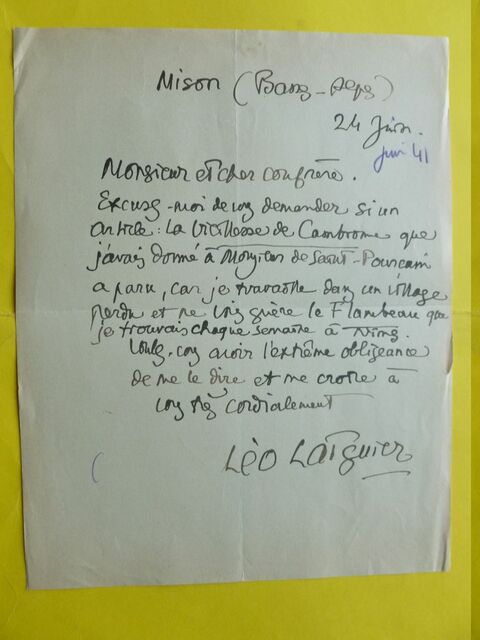 Mison (Bass-Alpes)
24 Juin.
juin 41
Monsieur et cher confrère.
Excusez-moi de vous demander si un
article : La Vieillesse de Cambronne que
j'avais donné à Monsieur de Saint-Pourçain
a paru, car je travaille dans un village
perdu et ne vois guère le Flambeau que
je trouvais chaque semaine à Nîmes.
Voulez-vous avoir l'extrême obligeance
de me le dire et me croire à
vous très cordialement
Léo Larguier